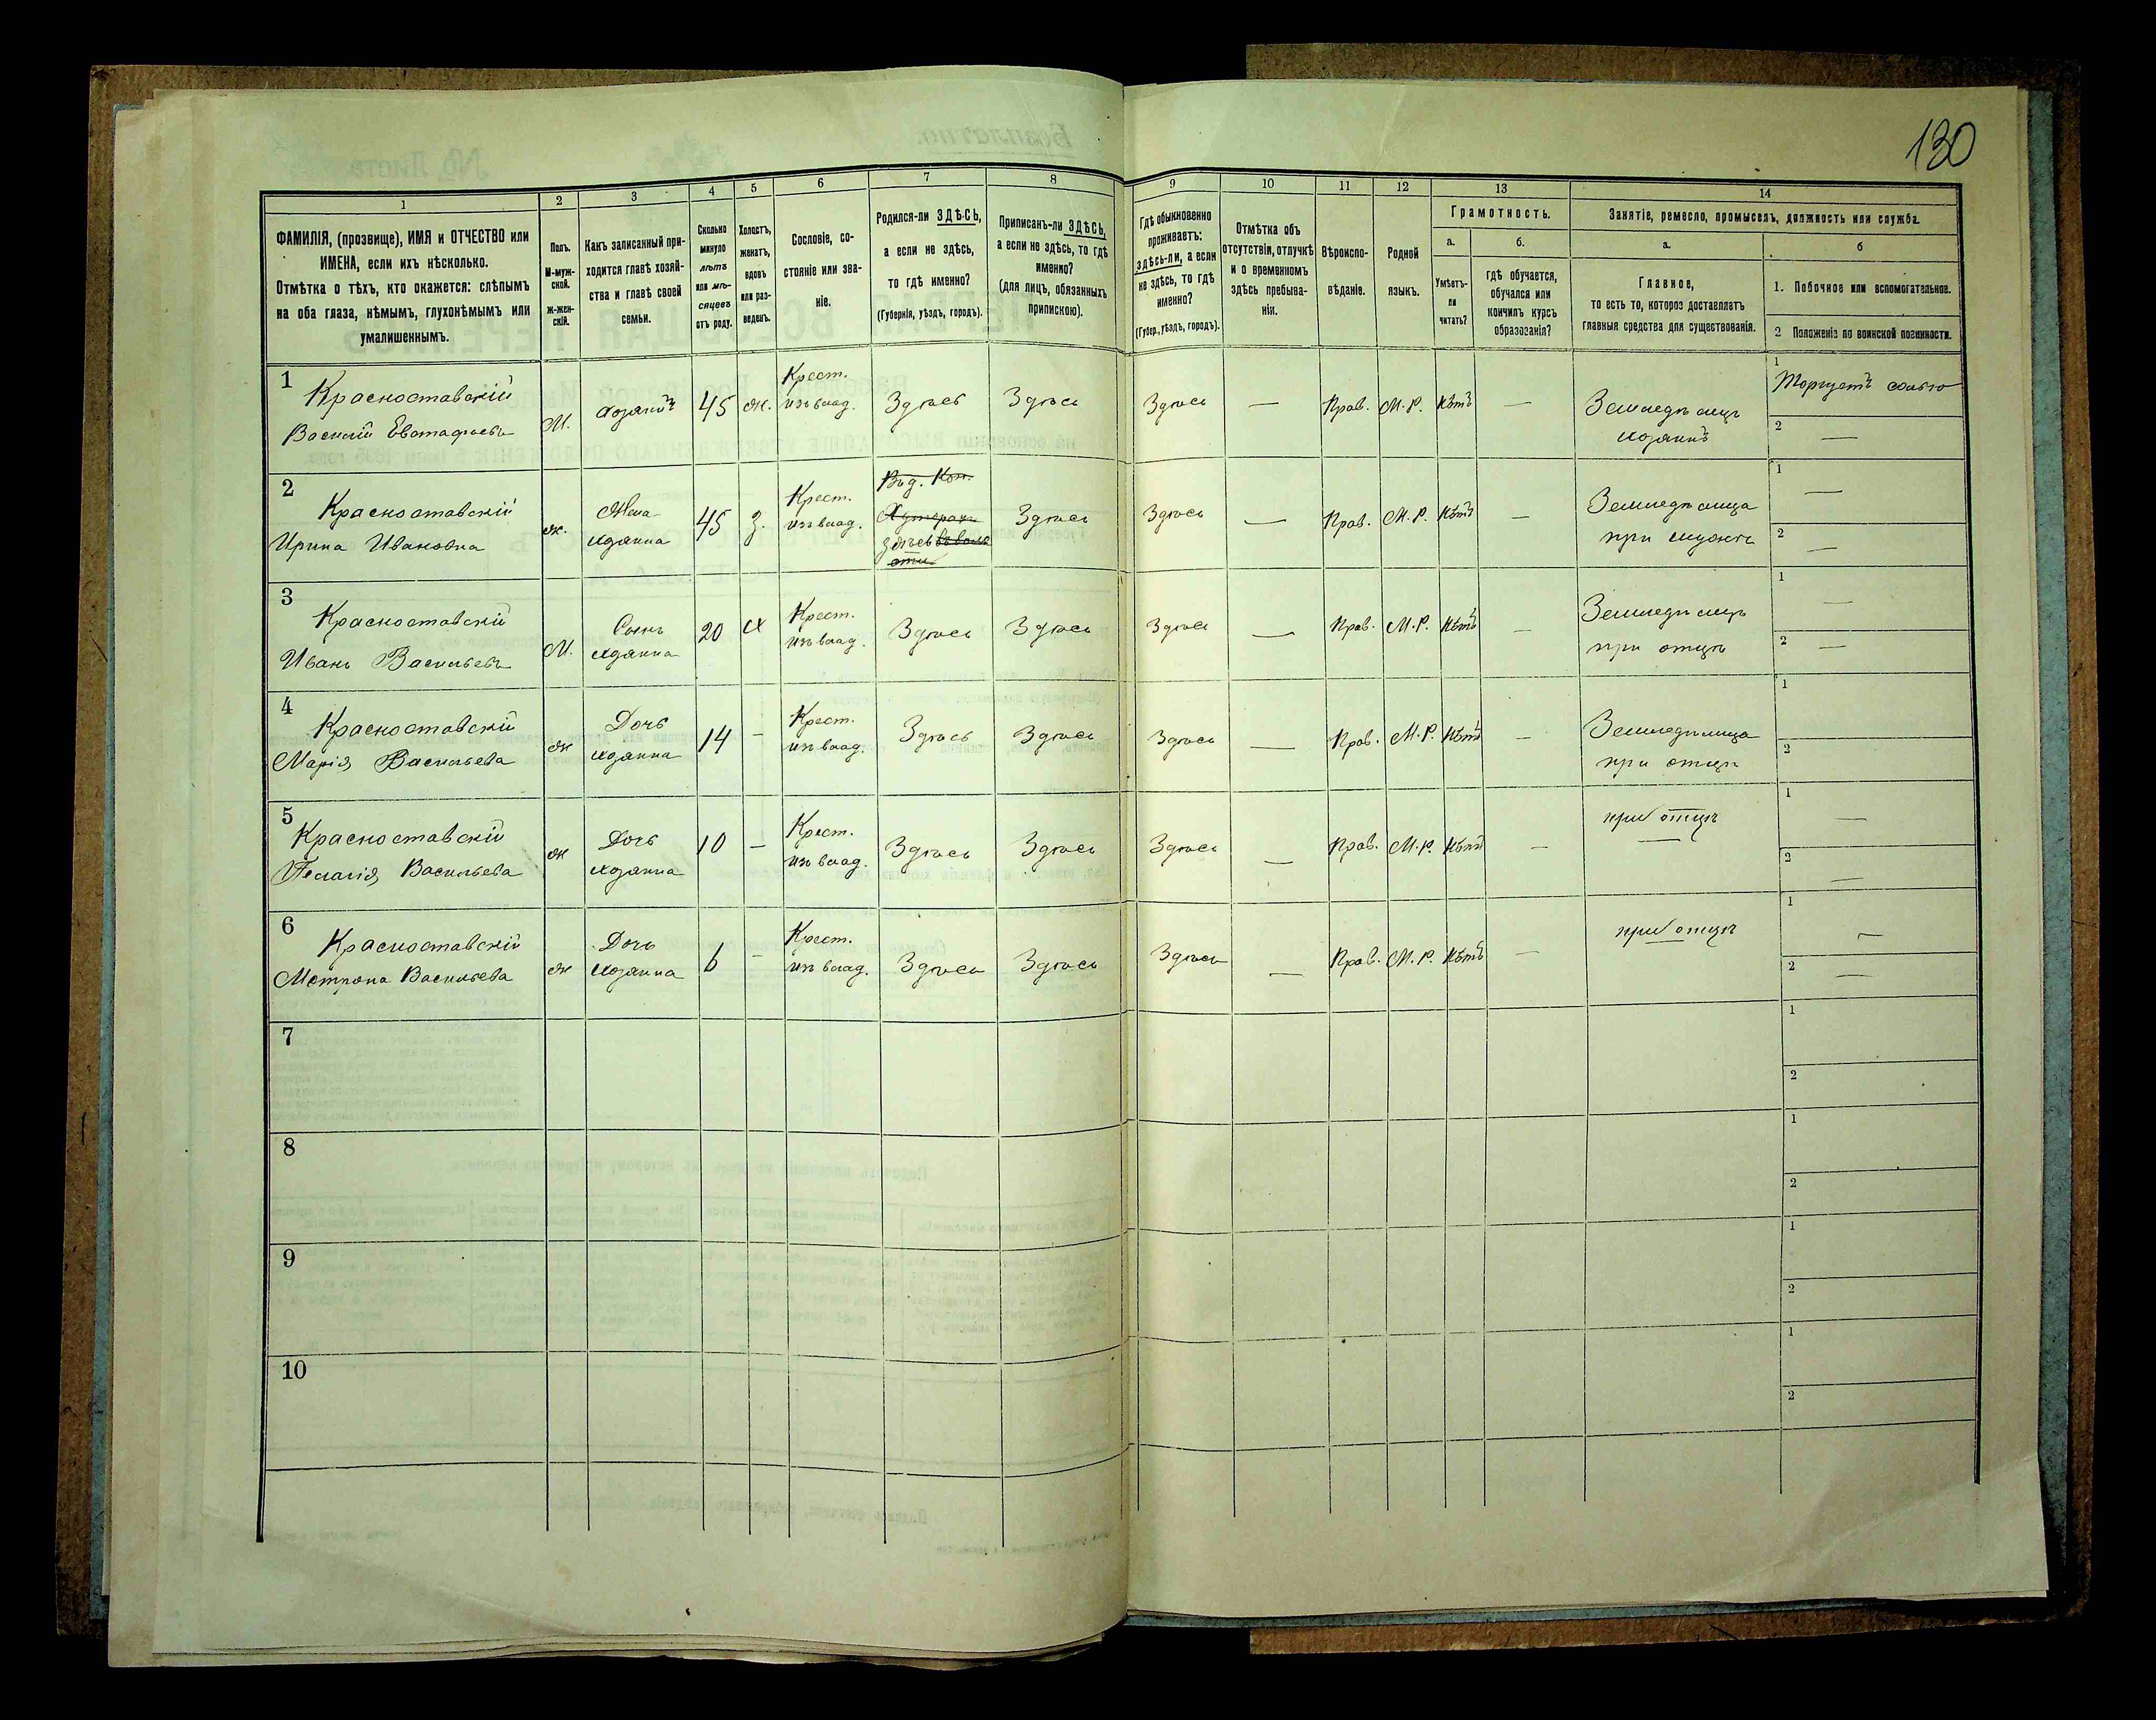 130
1 2 3 4 5 6 7 8 9 10 11 12 13 14
ФАМИЛІЯ, (прозвище), ИМЯ и ОТЧЕСТВО или
ИМЕНА, если ихъ нѣсколько.
Отмѣтка о тѣхъ, кто окажется: слѣпымъ
на оба глаза, нѣмымъ, глухонѣмымъ или
умалишеннымъ.
Полъ.
М-муж-
ской.
ж-жен-
скій.
Какъ записанный при-
ходится главѣ хозяй-
ства и главѣ своей
семьи.
Сколько
минуло
лѣтъ
или мѣ-
сяцевъ
отъ роду.
Холостъ,
женатъ,
вдовъ
или раз-
веденъ.
Сословіе, со-
стояніе или зва-
ніе.
Родился-ли ЗДѢСЬ,
а если не здѣсь,
то гдѣ именно?
(Губернія, уѣздъ, городъ).
Приписанъ-ли ЗДѢСЬ,
а если не здѣсь, то гдѣ
именно?
(для лицъ, обязанныхъ
припискою).
Гдѣ обыкновенно
проживаетъ:
здѣсь-ли, а если
не здѣсь, то гдѣ
именно?
(Губер., уѣздъ, городъ).
Отмѣтка объ
отсутствіи, отлучкѣ
и о временномъ
здѣсь пребыва-
ніи.
Вѣроиспо-
вѣданіе.
Родной
языкъ.
Грамотность.
а.
Умѣетъ-
ли
читать?
б.
гдѣ обучается,
обучался или
кончилъ курсъ
образованія?
Занятіе, ремесло, промыселъ, должность или служба.
а.
Главное,
то есть то, которое доставляетъ
главныя средства для существованія.
б
1. Побочное или вспомогательное.
2 Положеніе по воинской повинности.
1 Красноставскій
Василій Евстафьевъ
М. хозяинъ 45 ж. Крест.
изъ влад. Здѣсь Здѣсь Здѣсь — Прав. М.Р. Нѣтъ — Земледѣлецъ
хозяинъ
1 Торгуетъ солью
2 —
2 Красноставскій
Ирина Ивановна
ж. Жена
хозяина 45 З. Крест.
изъ влад. здѣсь Здѣсь Здѣсь — Прав. М.Р. Нѣтъ — Земледѣлица
при
1 —
2 —
3 Красноставскій
Иванъ Васильевъ
М. Сынъ
хозяина 20 х Крест.
изъ влад. Здѣсь Здѣсь Здѣсь — Прав. М.Р. Нѣтъ — Земледѣлецъ
при отцѣ
1 —
2 —
4 Красноставскій
Марія Васильева
ж Дочь
хозяина 14 — Крест.
изъ влад. Здѣсь Здѣсь Здѣсь — Прав. М.Р. Нѣтъ — Земледѣлица
при отцѣ
1
2
5 Красноставскій
Пелагія Васильева
ж Дочь
хозяина 10 — Крест.
изъ влад. Здѣсь Здѣсь Здѣсь — Прав. М.Р. Нѣтъ — при отцѣ
1 —
2 —
6 Красноставскій
Мотрона Васильева
ж Дочь
хозяина 6 — Крест.
изъ влад. Здѣсь Здѣсь Здѣсь — Прав. М.Р. Нѣтъ — при отцѣ
1 —
2 —
7
1
2
8
1
2
9
1
2
10
1
2